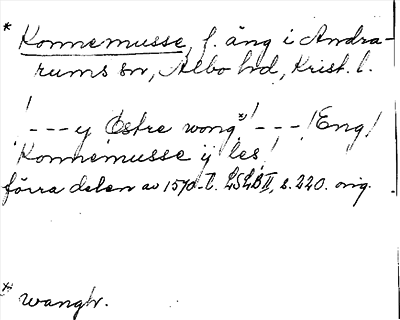 * Konnemusse, f. äng i Andra-
rums sn, Albo hd, Krist. l.
! - - - y Östre wong*! - - - ! Eng!
Konnemusse ij les!
förra delen av 1570-t. LSLB II, s. 220. orig.
* wangh.